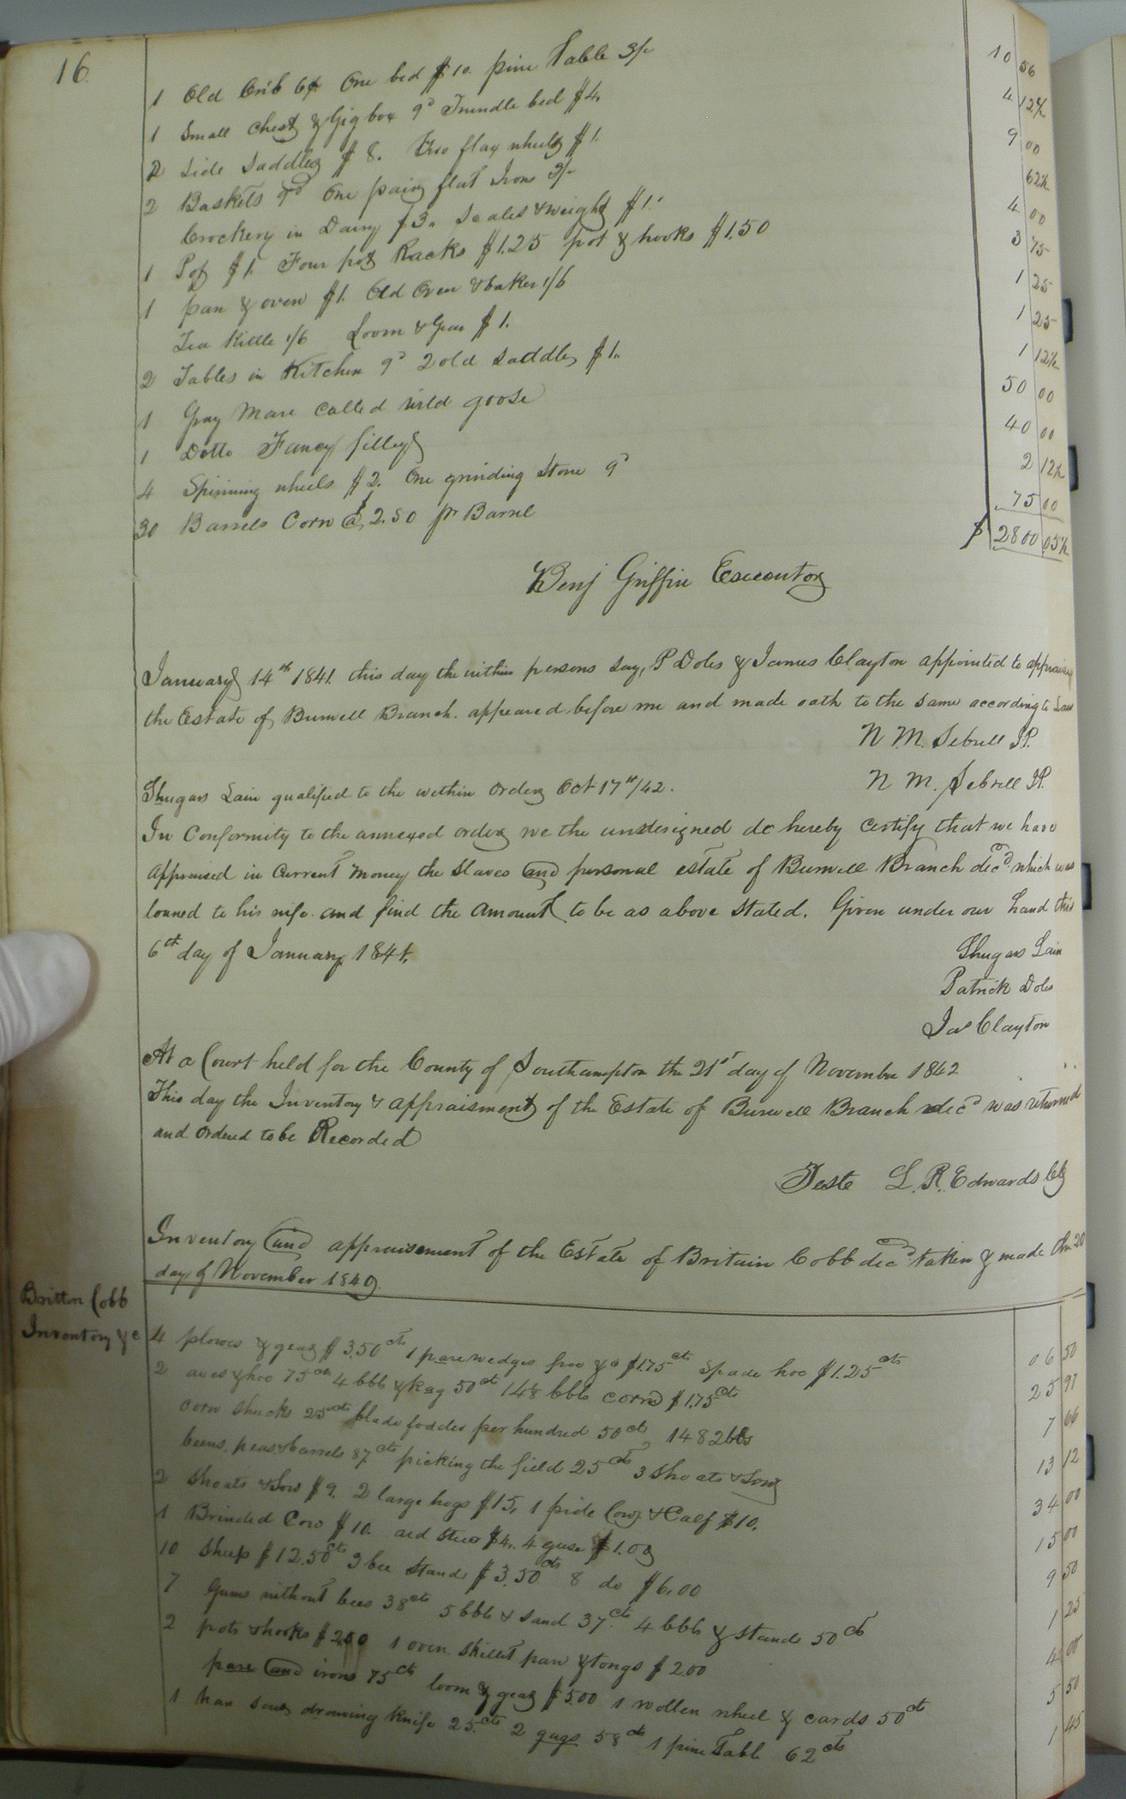 16
1 Old Crib 6/ One bed $10. pine Table 3/ 10 56
1 Small Chest & Gig box 9d Trundle bed $4. 4 12½
2 Side Saddles $8. Two flax wheels $1. 9 00
2 Baskets 9d One pair flat Irons 3/- 62½
Crockery in Dairy $3. Scales & weights $1. 4 00
1 Pot $1. Four pot Racks $1.25 pot & hooks $1.50 3 75
1 pan & oven $1. Old Oven & baker 1/6 1 25
Tea Kittle 1/6 Loom & Gear $1. 1 25
2 Tables in Kitchen 9d 2 old saddles $1. 1 12½
1 Gray Mare Called wild goose 50 00
1 Ditto Fancy filley 40 00
4 Spinning wheels $2. One grinding Stone 9d 2 12½
30 Barrels Corn @ $2.50 pr Barrel 75 00
$ 2800 05½
Benj Griffin Executor
January 14th 1841. this day the within persons Say, P Doles & James Clayton appointed to appraise
the Estate of Burwell Branch. appeared before me and made oath to the same according to Law
N. M. Sebrell JP.
Shugars Lain qualified to the within order Oct 17th/42. N. M. Sebrell JP.
In Conformity to the annexed order we the undersigned do hereby certify that we have
appraised in Current money the Slaves and personal estate of Burwell Branch decd which was
loaned to his wife and find the Amount to be as above stated. Given under our hand this
6th day of January 1841.
Shugars Lain
Patrick Doles
Jas Clayton
At a Court held for the County of Southampton the 21st day of November 1842
This day the Inventory & appraisment of the Estate of Burwell Branch decd was returned
and ordered to be Recorded
Teste L. R. Edwards Clk
Inventory and appraisement of the Estate of Britain Cobb decd taken & made the 20
day of November 1840
Britton Cobb
Inventory &c
4 plows & gear $3.50cts 1 pare wedges froo &c $1.75cts Spade hoe $1.25cts 06 50
2 axes & hoe 75cts 4 bbls & Keg 50ct 148 bbls corn $1.75cts 25 97
corn shucks 25cts blade fodder per hundred 50cts 1482 lbs 7 66
beens, peas & barrels 87cts picking the field 25cts 3 Shoats & Sow 13 12
2 Shoats & Sow $9. 2 large hogs $15. 1 pide Cow & Calf $10. 34 00
1 Brinded Cow $10. red steer $4. 4 geese $1.00 15 00
10 Sheep $12.50cts 3 bee stands $3.50cts 8 do $6.00 9 50
7 Gums without bees 38cts 5 bbls & Sand 37cts 4 bbls & stands 50cts 1 25
2 pots & hooks $2.00 1 oven skillet pan & tongs $2.00 4 00
pare and irons 75cts loom & gear $5.00 1 wollen wheel & cards 50cts 5 50
1 han saw drawing knife 25cts 2 gugs 58cts 1 pine Table 62cts 1 45